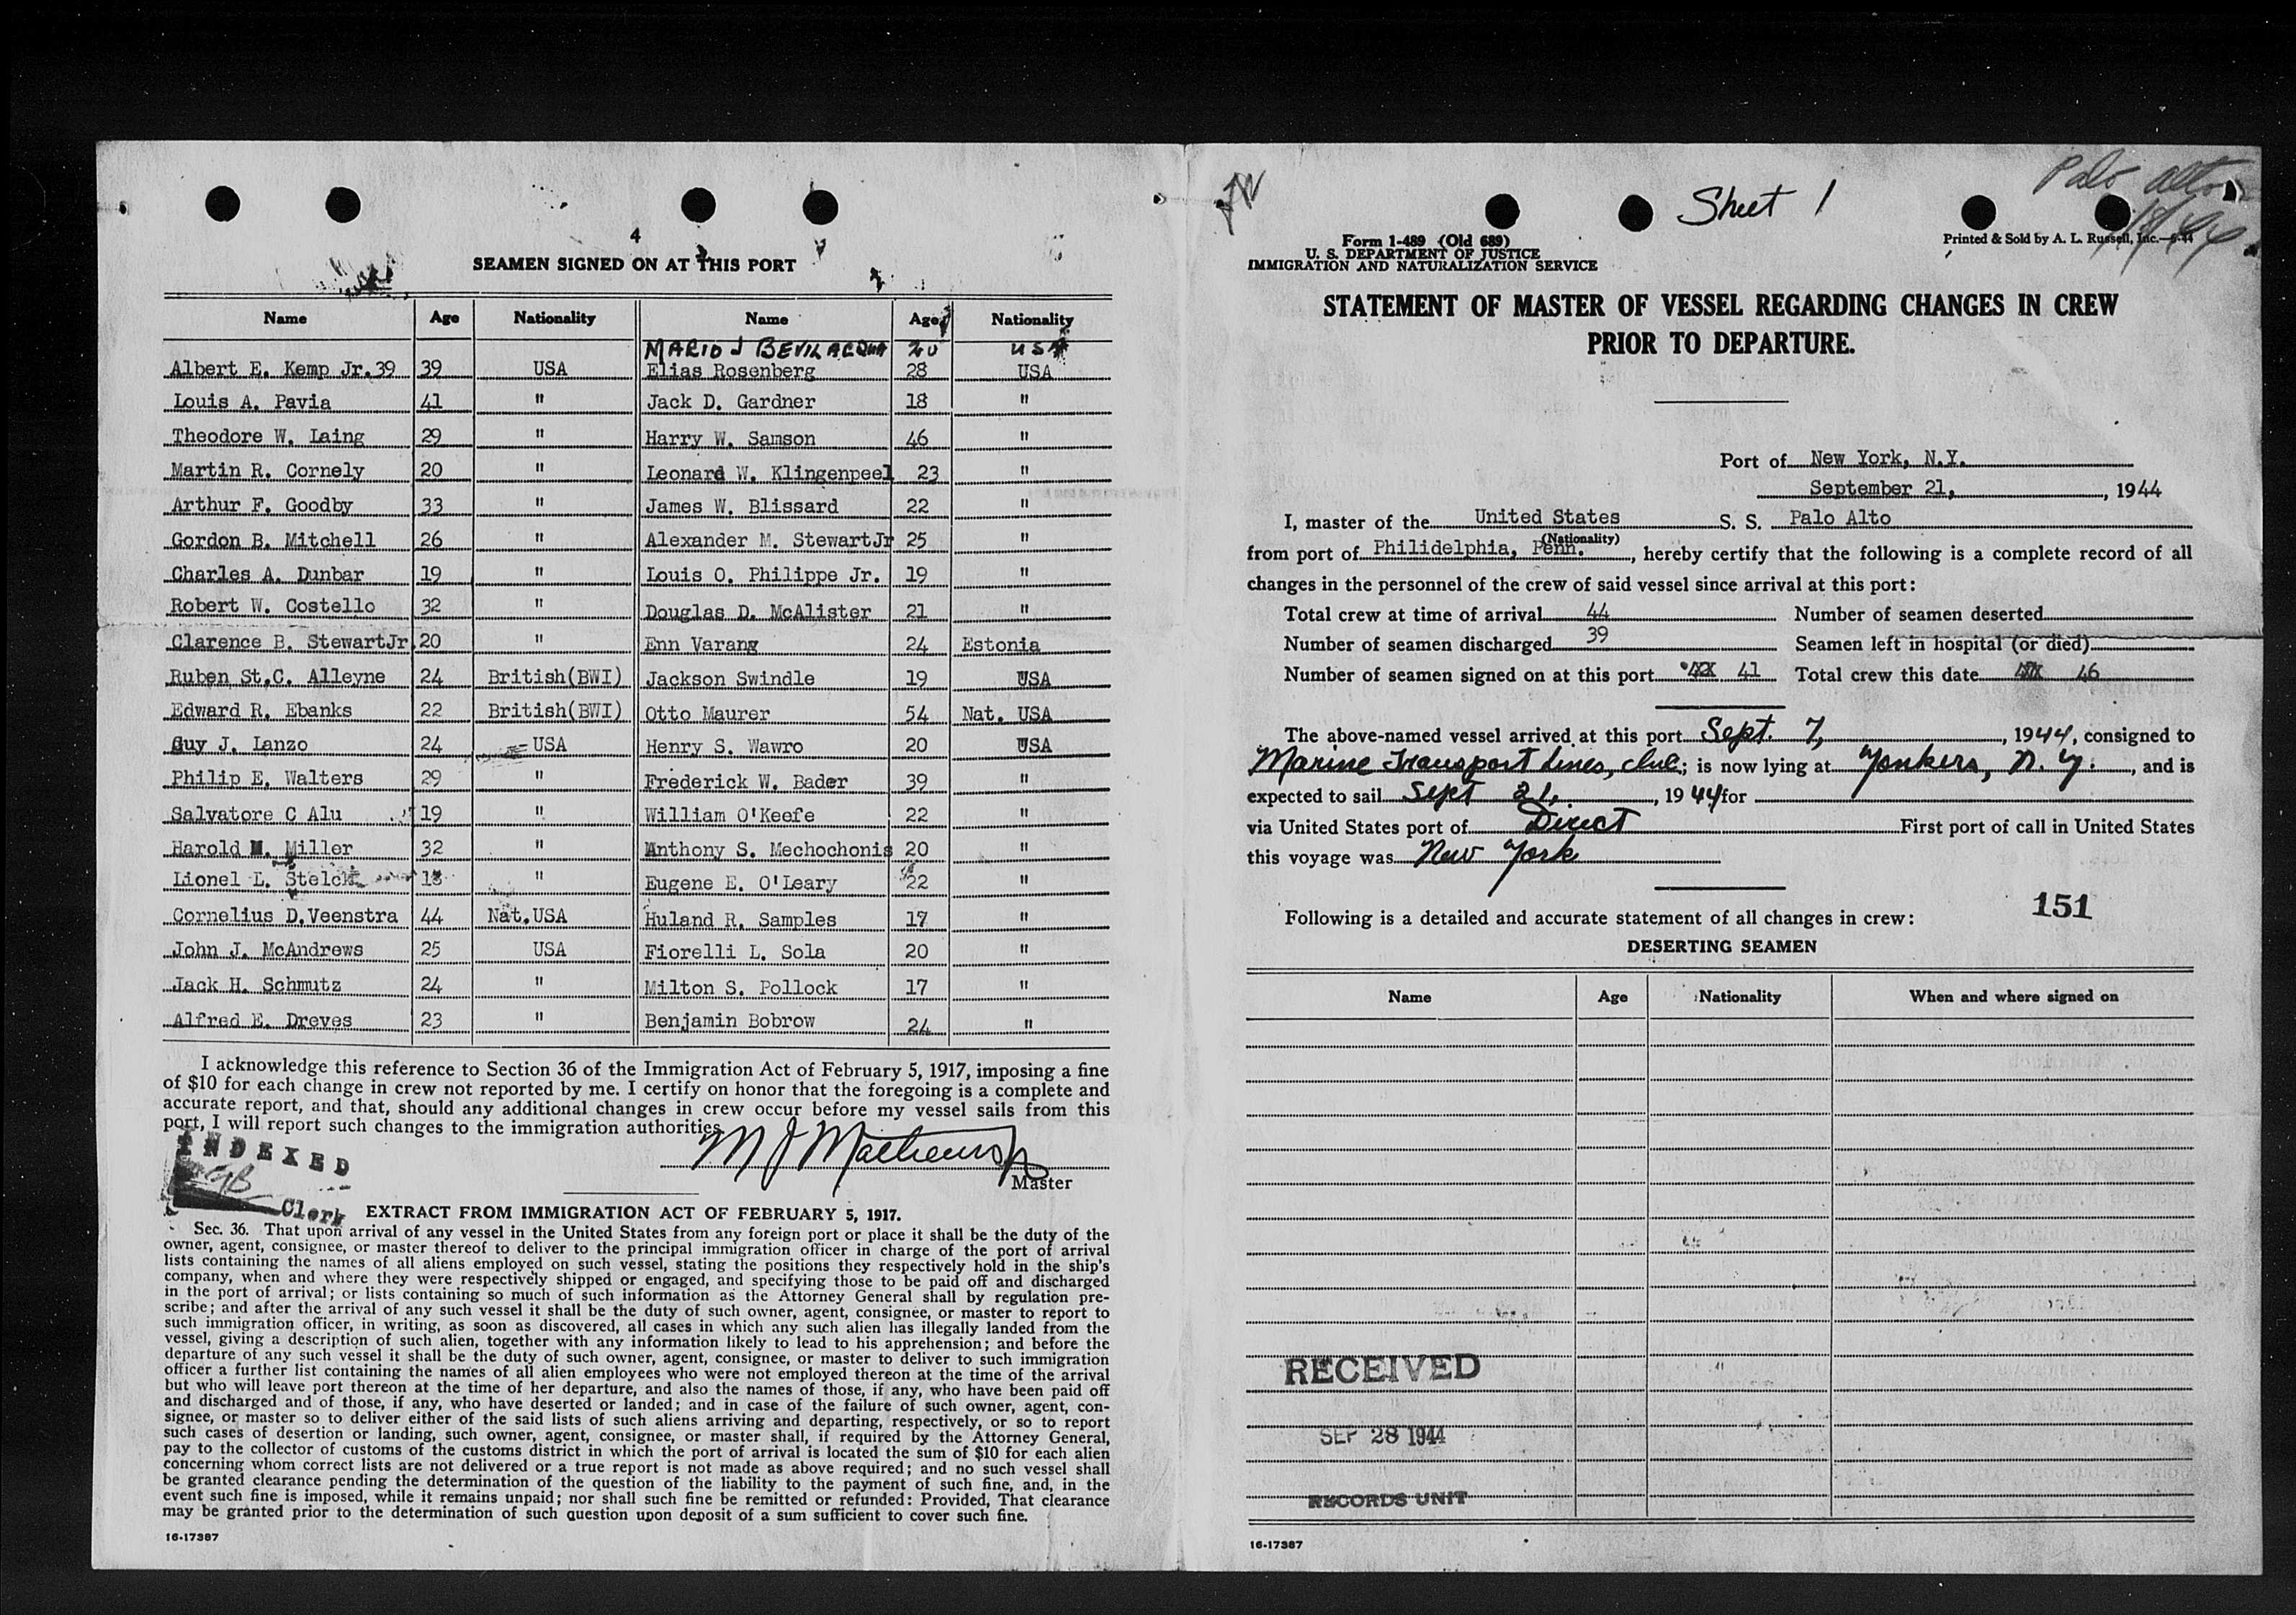 4
SEAMEN SIGNED ON AT THIS PORT
Name Age Nationality Name Age Nationality
MARIO J BEVILACQUA 20 USA
Albert E. Kemp Jr.39 39 USA Elias Rosenberg 28 USA
Louis A. Pavia 41 " Jack D. Gardner 18 "
Theodore W. Laing 29 " Harry W. Samson 46 "
Martin R. Cornely 20 " Leonard W. Klingenpeel 23 "
Arthur F. Goodby 33 " James W. Blissard 22 "
Gordon B. Mitchell 26 " Alexander M. StewartJr 25 "
Charles A. Dunbar 19 " Louis O. Philippe Jr. 19 "
Robert W. Costello 32 " Douglas D. McAlister 21 "
Clarence B. StewartJr. 20 " Enn Varang 24 Estonia
Ruben St.C. Alleyne 24 British(BWI) Jackson Swindle 19 USA
Edward R. Ebanks 22 British(BWI) Otto Maurer 54 Nat. USA
Guy J. Lanzo 24 USA Henry S. Wawro 20 USA
Philip E. Walters 29 " Frederick W. Bader 39 "
Salvatore C Alu 19 " William O'Keefe 22 "
Harold M. Miller 32 " Anthony S. Mechochonis 20 "
Lionel L. Stelck 18 " Eugene E. O'Leary 22 "
Cornelius D.Veenstra 44 Nat.USA Huland R. Samples 17 "
John J. McAndrews 25 USA Fiorelli L. Sola 20 "
Jack H. Schmutz 24 " Milton S. Pollock 17 "
Alfred E. Dreves 23 " Benjamin Bobrow 24 "
I acknowledge this reference to Section 36 of the Immigration Act of February 5, 1917, imposing a fine
of $10 for each change in crew not reported by me. I certify on honor that the foregoing is a complete and
accurate report, and that, should any additional changes in crew occur before my vessel sails from this
port, I will report such changes to the immigration authorities.
M J Mathews Jr
Master
INDEXED
Clerk
EXTRACT FROM IMMIGRATION ACT OF FEBRUARY 5, 1917.
Sec. 36. That upon arrival of any vessel in the United States from any foreign port or place it shall be the duty of the
owner, agent, consignee, or master thereof to deliver to the principal immigration officer in charge of the port of arrival
lists containing the names of all aliens employed on such vessel, stating the positions they respectively hold in the ship's
company, when and where they were respectively shipped or engaged, and specifying those to be paid off and discharged
in the port of arrival; or lists containing so much of such information as the Attorney General shall by regulation pre-
scribe; and after the arrival of any such vessel it shall be the duty of such owner, agent, consignee, or master to report to
such immigration officer, in writing, as soon as discovered, all cases in which any such alien has illegally landed from the
vessel, giving a description of such alien, together with any information likely to lead to his apprehension; and before the
departure of any such vessel it shall be the duty of such owner, agent, consignee, or master to deliver to such immigration
officer a further list containing the names of all alien employees who were not employed thereon at the time of the arrival
but who will leave port thereon at the time of her departure, and also the names of those, if any, who have been paid off
and discharged and of those, if any, who have deserted or landed; and in case of the failure of such owner, agent, con-
signee, or master so to deliver either of the said lists of such aliens arriving and departing, respectively, or so to report
such cases of desertion or landing, such owner, agent, consignee, or master shall, if required by the Attorney General,
pay to the collector of customs of the customs district in which the port of arrival is located the sum of $10 for each alien
concerning whom correct lists are not delivered or a true report is not made as above required; and no such vessel shall
be granted clearance pending the determination of the question of the liability to the payment of such fine, and, in the
event such fine is imposed, while it remains unpaid; nor shall such fine be remitted or refunded: Provided, That clearance
may be granted prior to the determination of such question upon deposit of a sum sufficient to cover such fine.
16-17387
Sheet 1
Palo Alto
Form 1-489 (Old 689)
U. S. DEPARTMENT OF JUSTICE
IMMIGRATION AND NATURALIZATION SERVICE
Printed & Sold by A. L. Russell, Inc.—6-44
STATEMENT OF MASTER OF VESSEL REGARDING CHANGES IN CREW
PRIOR TO DEPARTURE.
Port of New York, N.Y.
September 21, , 1944
I, master of the United States S. S. Palo Alto
(Nationality)
from port of Philidelphia, Penn. , hereby certify that the following is a complete record of all
changes in the personnel of the crew of said vessel since arrival at this port:
Total crew at time of arrival 44 Number of seamen deserted
Number of seamen discharged 39 Seamen left in hospital (or died)
Number of seamen signed on at this port 41 Total crew this date 46
The above-named vessel arrived at this port Sept. 7, , 1944, consigned to
Marine Transport Lines, Inc.; is now lying at Yonkers, N.Y. , and is
expected to sail Sept 21, , 1944 for
via United States port of Direct First port of call in United States
this voyage was New York
151
Following is a detailed and accurate statement of all changes in crew:
DESERTING SEAMEN
Name Age Nationality When and where signed on
RECEIVED
SEP 28 1944
RECORDS UNIT
16-17387